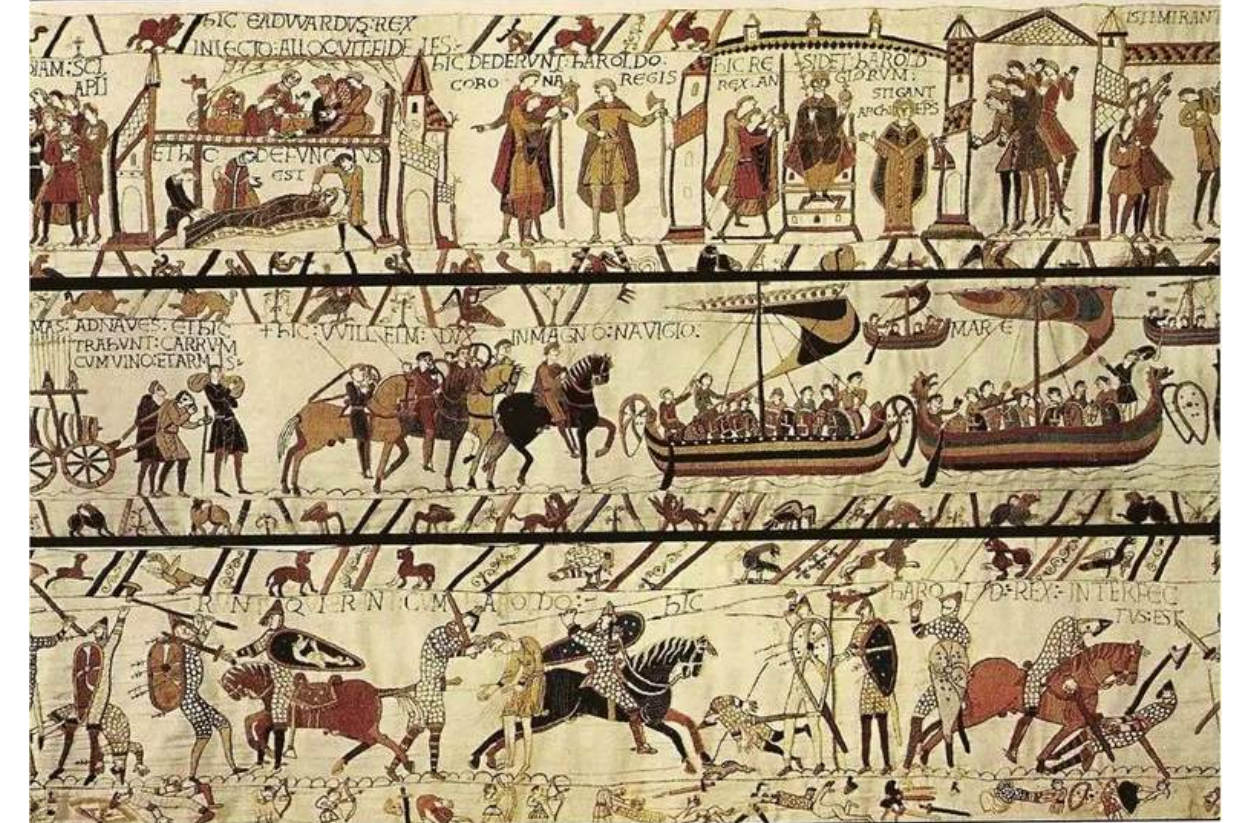 HIC EADVVARDVS:REX
INLECTO:ALLOQVIT:FIDELES:
IAM:SCI
APLI
ET HIC DEFVNCTVS
EST
HIC DEDERVNT:HAROLDO:
CORONA REGIS
HIC RESIDET:HAROLD
REX:ANGLORVM:
STIGANT
ARCHIEPS
ISTI MIRANT
MAS: ADNAVES: ETHIC
TRAHUNT:CARRVM
CVMVINO:ETARMIS:
+ HIC:VVILLELM: DVX INMAGNO:NAVIGIO:
MARE
RVNT QVI ERANT CVM HAROLDO:
HIC HAROLD:REX:INTERFEC
TVS:EST